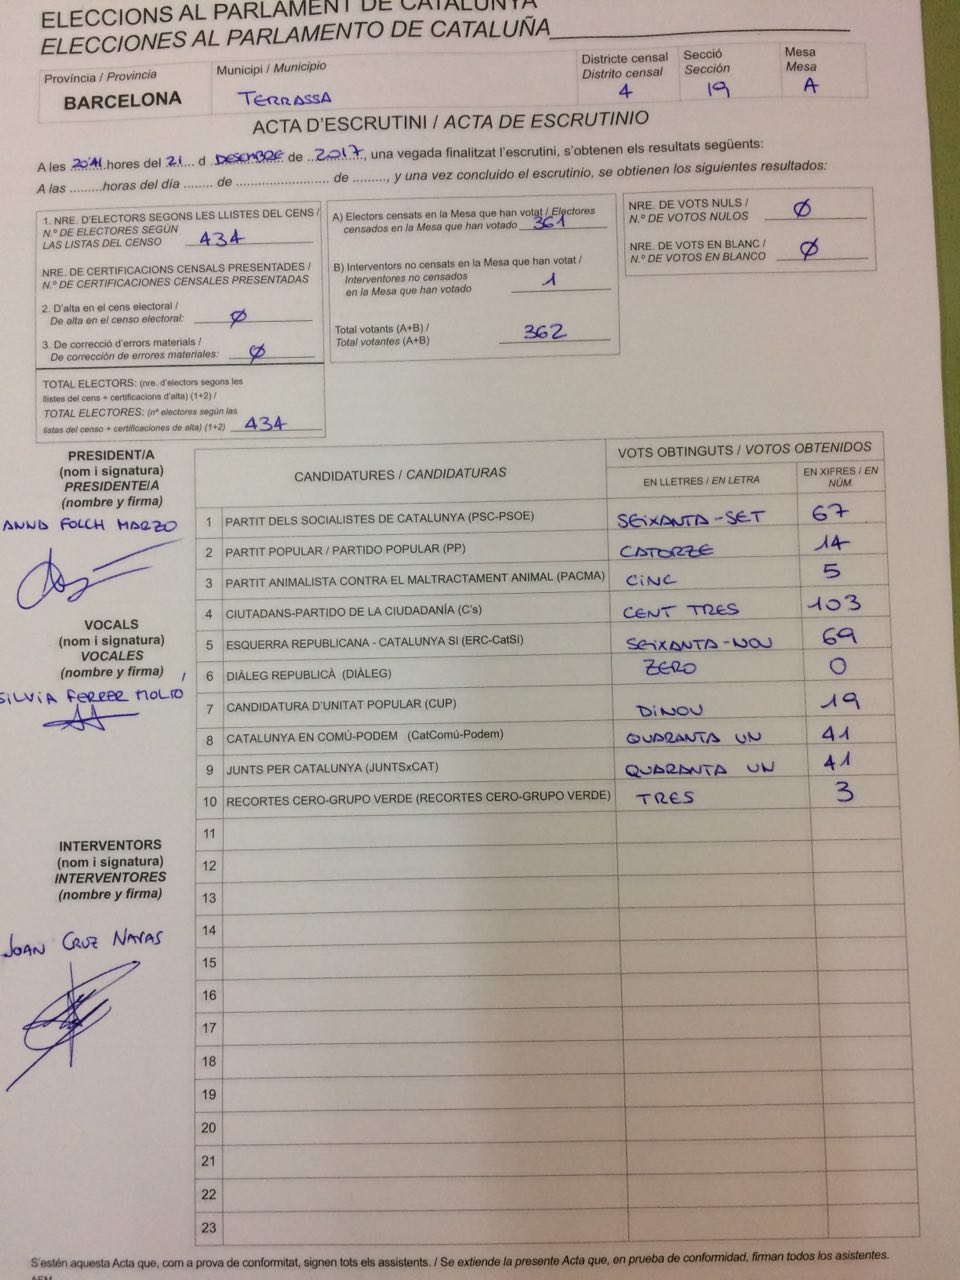 ELECCIONS AL PARLAMENT DE CATALUNYA
ELECCIONES AL PARLAMENTO DE CATALUÑA
Província / Provincia
BARCELONA
Municipi / Municipio
TERRASSA
Districte censal
Distrito censal
4
Secció
Sección
19
Mesa
Mesa
A
ACTA D'ESCRUTINI / ACTA DE ESCRUTINIO
A les 20:41 hores del 21 d DESEMBRE de 2017, una vegada finalitzat l'escrutini, s'obtenen els resultats següents:
A las .........horas del día ....... de ........................ de ........, y una vez concluido el escrutinio, se obtienen los siguientes resultados:
1. NRE. D'ELECTORS SEGONS LES LLISTES DEL CENS /
N.º DE ELECTORES SEGÚN
LAS LISTAS DEL CENSO 434
NRE. DE CERTIFICACIONS CENSALS PRESENTADES /
N.º DE CERTIFICACIONES CENSALES PRESENTADAS
2. D'alta en el cens electoral /
De alta en el censo electoral: Ø
3. De correcció d'errors materials /
De corrección de errores materiales: Ø
TOTAL ELECTORS: (nre. d'electors segons les
llistes del cens + certificacions d'alta) (1+2) /
TOTAL ELECTORES: (nº electores según las
listas del censo + certificaciones de alta) (1+2) 434
A) Electors censats en la Mesa que han votat / Electores
censados en la Mesa que han votado 361
B) Interventors no censats en la Mesa que han votat /
Interventores no censados
en la Mesa que han votado 1
Total votants (A+B) /
Total votantes (A+B) 362
NRE. DE VOTS NULS /
N.º DE VOTOS NULOS Ø
NRE. DE VOTS EN BLANC /
N.º DE VOTOS EN BLANCO Ø
PRESIDENT/A
(nom i signatura)
PRESIDENTE/A
(nombre y firma)
ANNA FOLCH MARZO
VOCALS
(nom i signatura)
VOCALES
(nombre y firma)
SILVIA FERRER MOLIO
INTERVENTORS
(nom i signatura)
INTERVENTORES
(nombre y firma)
JOAN CRUZ NAVAS
CANDIDATURES / CANDIDATURAS
VOTS OBTINGUTS / VOTOS OBTENIDOS
EN LLETRES / EN LETRA
EN XIFRES / EN
NÚM.
1 PARTIT DELS SOCIALISTES DE CATALUNYA (PSC-PSOE) SEIXANTA-SET 67
2 PARTIT POPULAR / PARTIDO POPULAR (PP) CATORZE 14
3 PARTIT ANIMALISTA CONTRA EL MALTRACTAMENT ANIMAL (PACMA) CINC 5
4 CIUTADANS-PARTIDO DE LA CIUDADANÍA (C's) CENT TRES 103
5 ESQUERRA REPUBLICANA - CATALUNYA SI (ERC-CatSí) SEIXANTA-NOU 69
6 DIÀLEG REPUBLICÀ (DIÀLEG) ZERO 0
7 CANDIDATURA D'UNITAT POPULAR (CUP) DINOU 19
8 CATALUNYA EN COMÚ-PODEM (CatComú-Podem) QUARANTA UN 41
9 JUNTS PER CATALUNYA (JUNTSxCAT) QUARANTA UN 41
10 RECORTES CERO-GRUPO VERDE (RECORTES CERO-GRUPO VERDE) TRES 3
11
12
13
14
15
16
17
18
19
20
21
22
23
S'estén aquesta Acta que, com a prova de conformitat, signen tots els assistents. / Se extiende la presente Acta que, en prueba de conformidad, firman todos los asistentes.